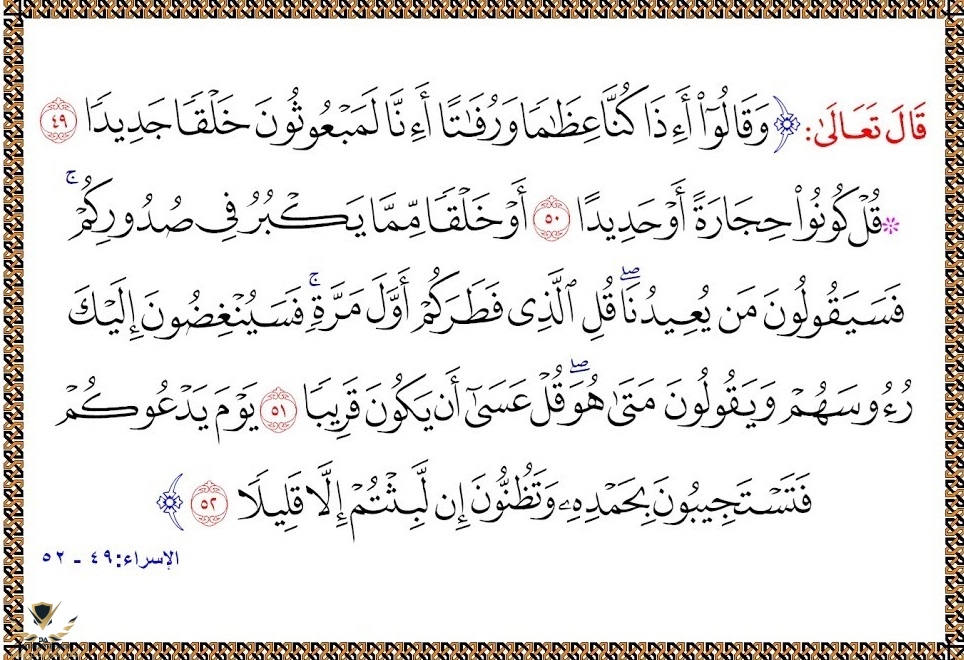 قَالَ تَعَالَىٰ: ﴿ وَقَالُوٓاْ أَءِذَا كُنَّا عِظَٰمٗا وَرُفَٰتًا أَءِنَّا لَمَبۡعُوثُونَ خَلۡقٗا جَدِيدٗا ٤٩
* قُلۡ كُونُواْ حِجَارَةً أَوۡ حَدِيدًا ٥٠ أَوۡ خَلۡقٗا مِّمَّا يَكۡبُرُ فِي صُدُورِكُمۡۚ
فَسَيَقُولُونَ مَن يُعِيدُنَاۖ قُلِ ٱلَّذِي فَطَرَكُمۡ أَوَّلَ مَرَّةٖۚ فَسَيُنۡغِضُونَ إِلَيۡكَ
رُءُوسَهُمۡ وَيَقُولُونَ مَتَىٰ هُوَۖ قُلۡ عَسَىٰٓ أَن يَكُونَ قَرِيبٗا ٥١ يَوۡمَ يَدۡعُوكُمۡ
فَتَسۡتَجِيبُونَ بِحَمۡدِهِۦ وَتَظُنُّونَ إِن لَّبِثۡتُمۡ إِلَّا قَلِيلٗا ٥٢ ﴾
الإسراء: ٤٩ - ٥٢